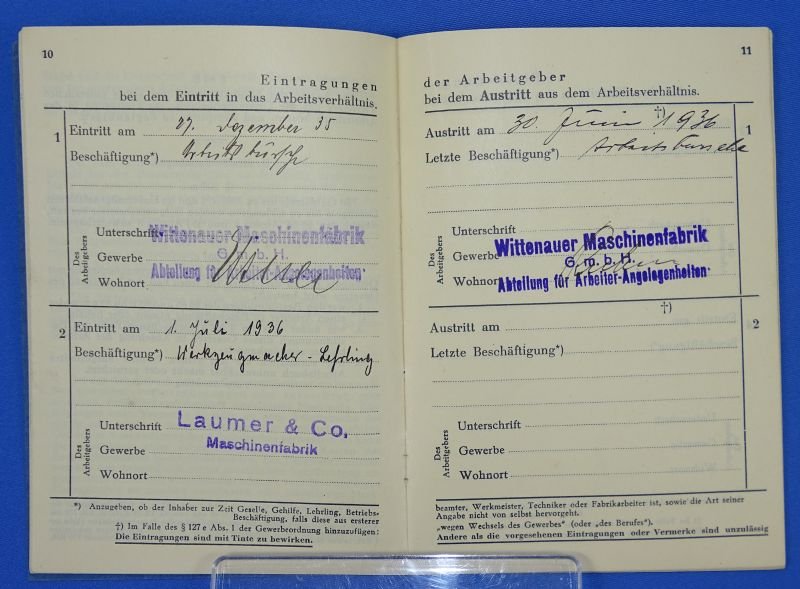 10
Eintragungen
bei dem Eintritt in das Arbeitsverhältnis.
1
Eintritt am 27. Dezember 35
Beschäftigung*) Arbeitsbursche
Des Arbeitgebers
Unterschrift
Gewerbe
Wohnort
Wittenauer Maschinenfabrik
G. m. b. H.
Abteilung für Arbeiter-Angelegenheiten
2
Eintritt am 1. Juli 1936
Beschäftigung*) Werkzeugmacher-Lehrling
Des Arbeitgebers
Unterschrift
Gewerbe
Wohnort
Laumer & Co.
Maschinenfabrik
*) Anzugeben, ob der Inhaber zur Zeit Geselle, Gehilfe, Lehrling, Betriebs-
Beschäftigung, falls diese aus ersterer
†) Im Falle des § 127 e Abs. 1 der Gewerbeordnung hinzuzufügen:
Die Eintragungen sind mit Tinte zu bewirken.
11
der Arbeitgeber
bei dem Austritt aus dem Arbeitsverhältnis.
†)
1
Austritt am 30. Juni 1936
Letzte Beschäftigung*) Arbeitsbursche
Des Arbeitgebers
Unterschrift
Gewerbe
Wohnort
Wittenauer Maschinenfabrik
G. m. b. H.
Abteilung für Arbeiter-Angelegenheiten
†)
2
Austritt am
Letzte Beschäftigung*)
Des Arbeitgebers
Unterschrift
Gewerbe
Wohnort
beamter, Werkmeister, Techniker oder Fabrikarbeiter ist, sowie die Art seiner
Angabe nicht von selbst hervorgeht.
„wegen Wechsels des Gewerbes" (oder „des Berufes").
Andere als die vorgesehenen Eintragungen oder Vermerke sind unzulässig